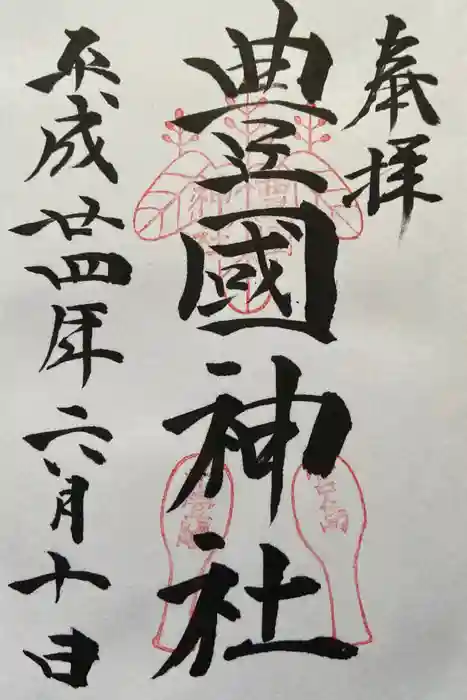 奉拝
豊國神社
平成廿四年六月十日